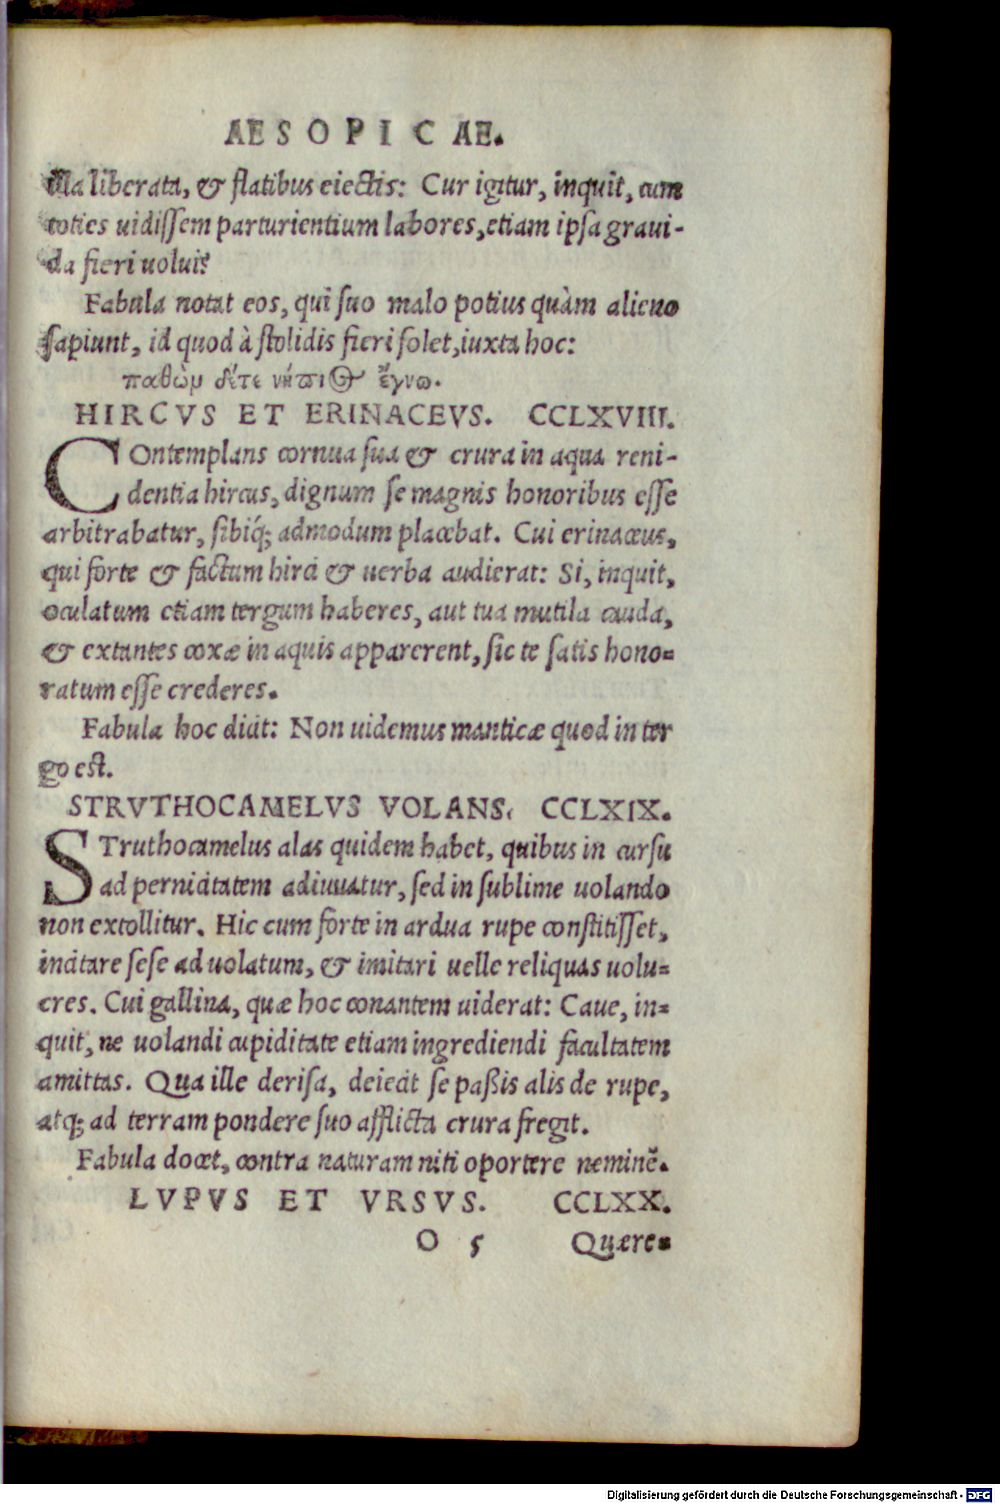 AESOPICAE.
illa liberata, & flatibus eiectis: Cur igitur, inquit, cum
toties uidissem parturientium labores, etiam ipsa graui-
da fieri uolui?
Fabula notat eos, qui suo malo potius quàm alieno
sapiunt, id quod à stolidis fieri solet, iuxta hoc:
παθὼμ δέτε νήπιος ἔγνω.
HIRCVS ET ERINACEVS. CCLXVIII.
COntemplans cornua sua & crura in aqua reni-
dentia hircus, dignum se magnis honoribus esse
arbitrabatur, sibiq́; admodum placebat. Cui erinaceus,
qui forte & factum hirci & uerba audierat: Si, inquit,
oculatum etiam tergum haberes, aut tua mutila cauda,
& extantes coxæ in aquis apparerent, sic te satis hono-
ratum esse crederes.
Fabula hoc dicit: Non uidemus manticæ quod in ter
go est.
STRVTHOCAMELVS VOLANS. CCLXIX.
STruthocamelus alas quidem habet, quibus in cursu
ad pernicitatem adiuuatur, sed in sublime uolando
non extollitur. Hic cum forte in ardua rupe constitisset,
incitare sese ad uolatum, & imitari uelle reliquas uolu-
cres. Cui gallina, quæ hoc conantem uiderat: Caue, in-
quit, ne uolandi cupiditate etiam ingrediendi facultatem
amittas. Qua ille derisa, deiecit se paßis alis de rupe,
atq; ad terram pondere suo afflicta crura fregit.
Fabula docet, contra naturam niti oportere neminē.
LVPVS ET VRSVS. CCLXX.
O 5 Quære-
Digitalisierung gefördert durch die Deutsche Forschungsgemeinschaft - DFG